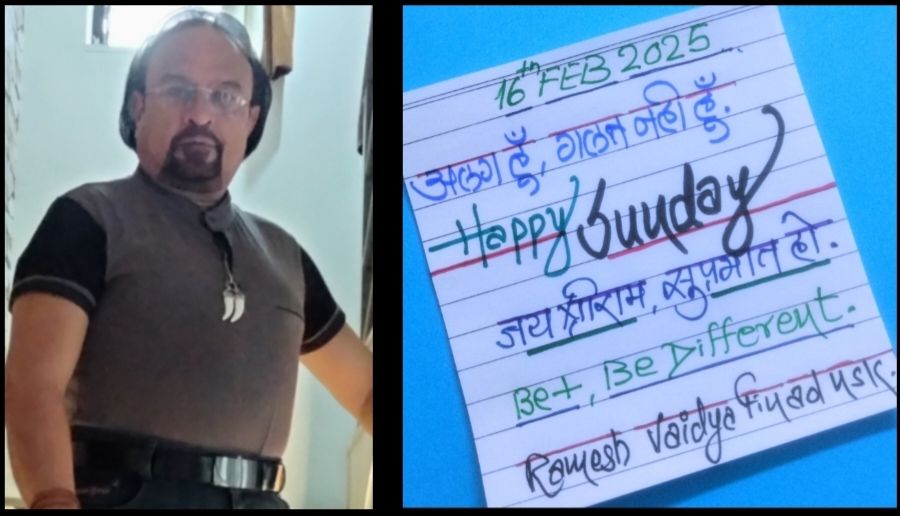 16th FEB 2025
अलग हूँ, गलत नही हूँ.
Happy Sunday
जय श्रीराम, सुप्रभात हो.
Be+, Be Different.
Ramesh Vaidya